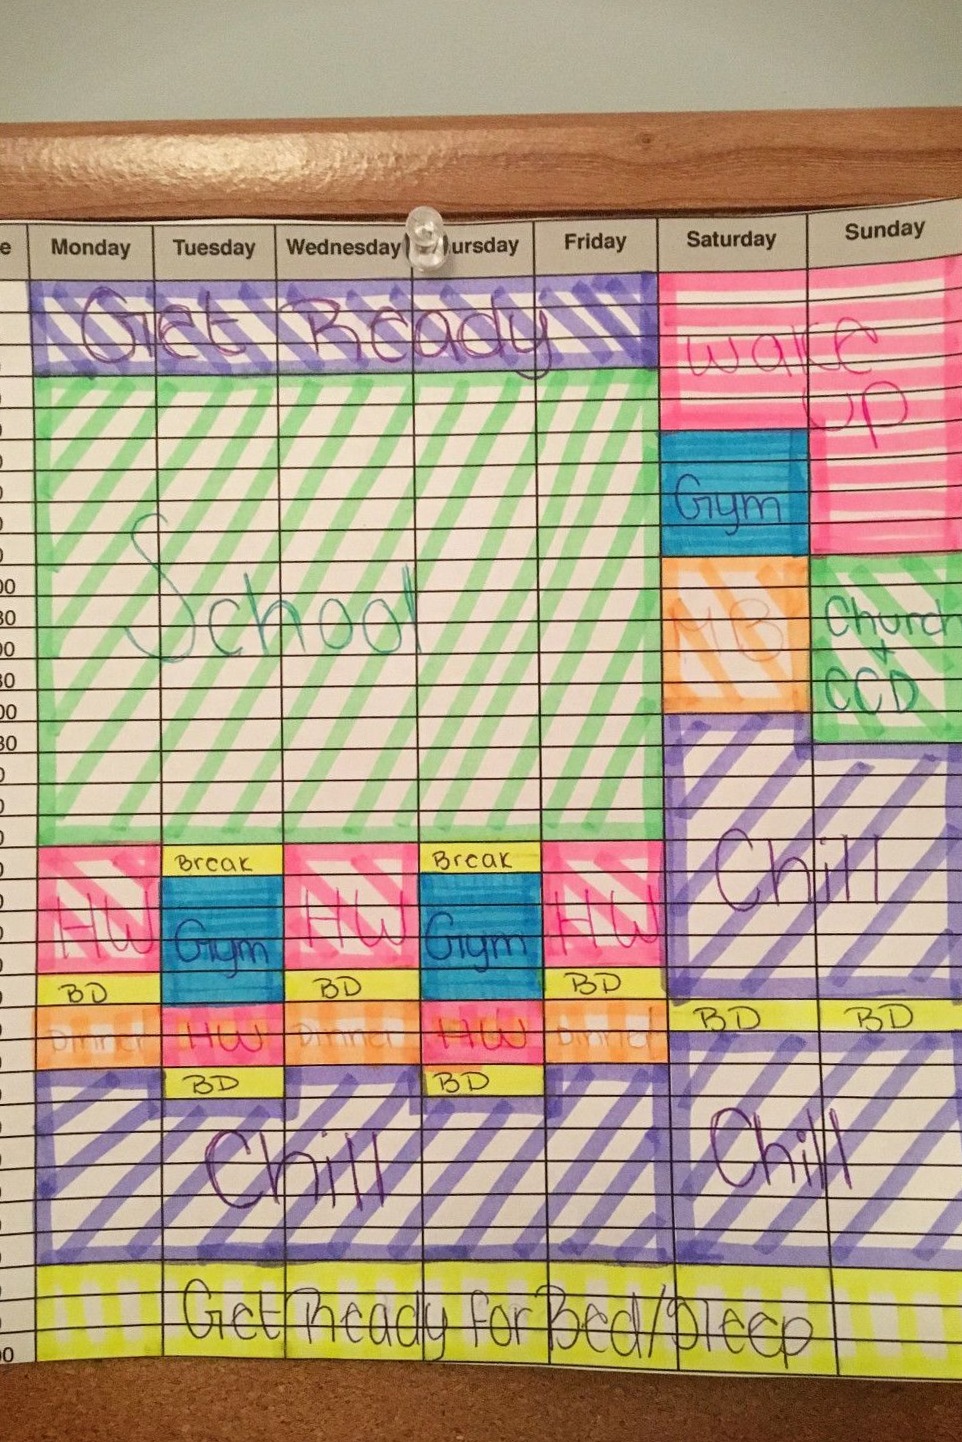 e Monday Tuesday Wednesday ursday Friday Saturday Sunday
Get Ready
wake
up
Gym
School
00
30
00
30
00
30
MB
Church
+
CCD
Chill
Break Break
HW Gym HW Gym HW
BD BD BD
BD BD
Dinner HW Dinner HW Dinner
BD BD
Chill Chill
Get Ready For Bed/Sleep
00